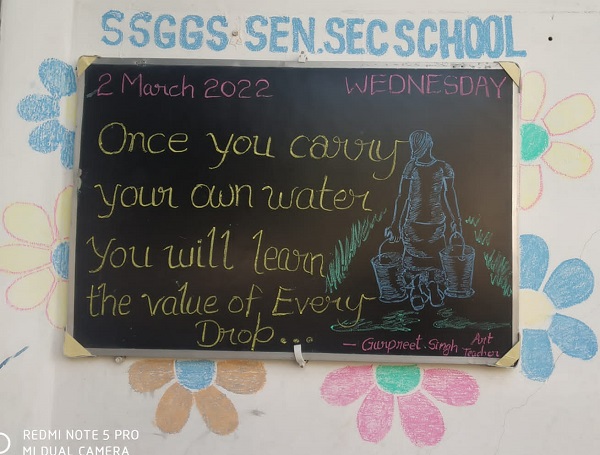 SSGGS SEN.SEC SCHOOL
2 March 2022 WEDNESDAY
Once you carry
your own water
you will learn
the value of Every
Drop...
- Gurpreet Singh Art Teacher
REDMI NOTE 5 PRO
MI DUAL CAMERA